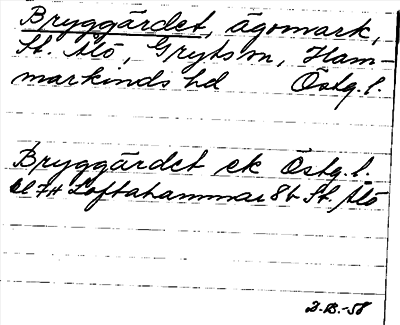 Bryggärdet, ägomark,
St. Alö, Gryts sn, Ham-
markinds hd Östg. l.
Bryggärdet ek Östg. l.
bl 7H Loftahammar 8b St. Alö
2.B.-58